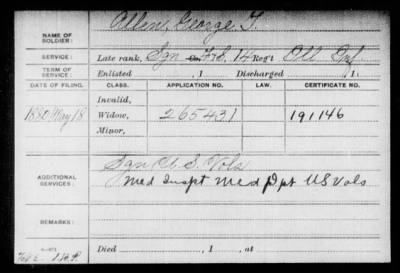 Allen, George T.
NAME OF SOLDIER:
SERVICE: Late rank, Sgn Co. F&S, 14 Reg't Ill Inf
TERM OF SERVICE: Enlisted , 1 Discharged , 1
DATE OF FILING. CLASS. APPLICATION NO. LAW. CERTIFICATE NO.
Invalid,
1880 May 18 Widow, 265431 191146
Minor,
Sgn U. S. Vols
ADDITIONAL SERVICES: Med Inspt Med Dpt US Vols
REMARKS:
Died , 1 , at